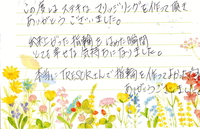 この度はステキなエンゲージリングを作って頂き
ありがとうございました。
出来上がった指輪をはめた瞬間
とても幸せな気持ちになりました。
本当にTRESORさんで指輪を作ってよかったです
ありがとうございました。